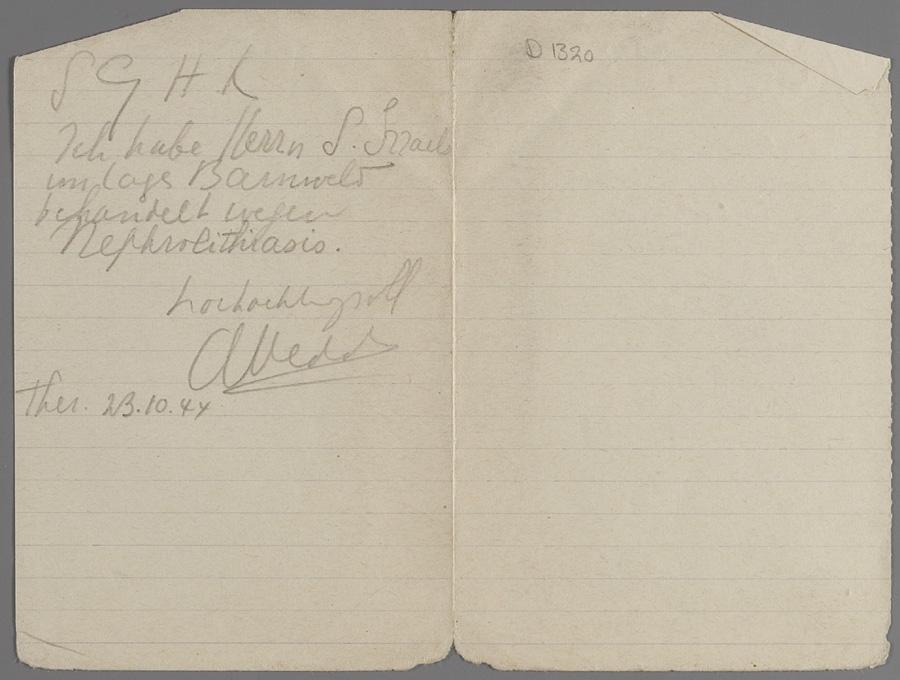 S G H K
Ich habe Herrn S. Israels
im Lager Barneveld
behandelt wegen
Nephrolithiasis.
hochachtungsvoll
Ther. 23.10.44
D 1320